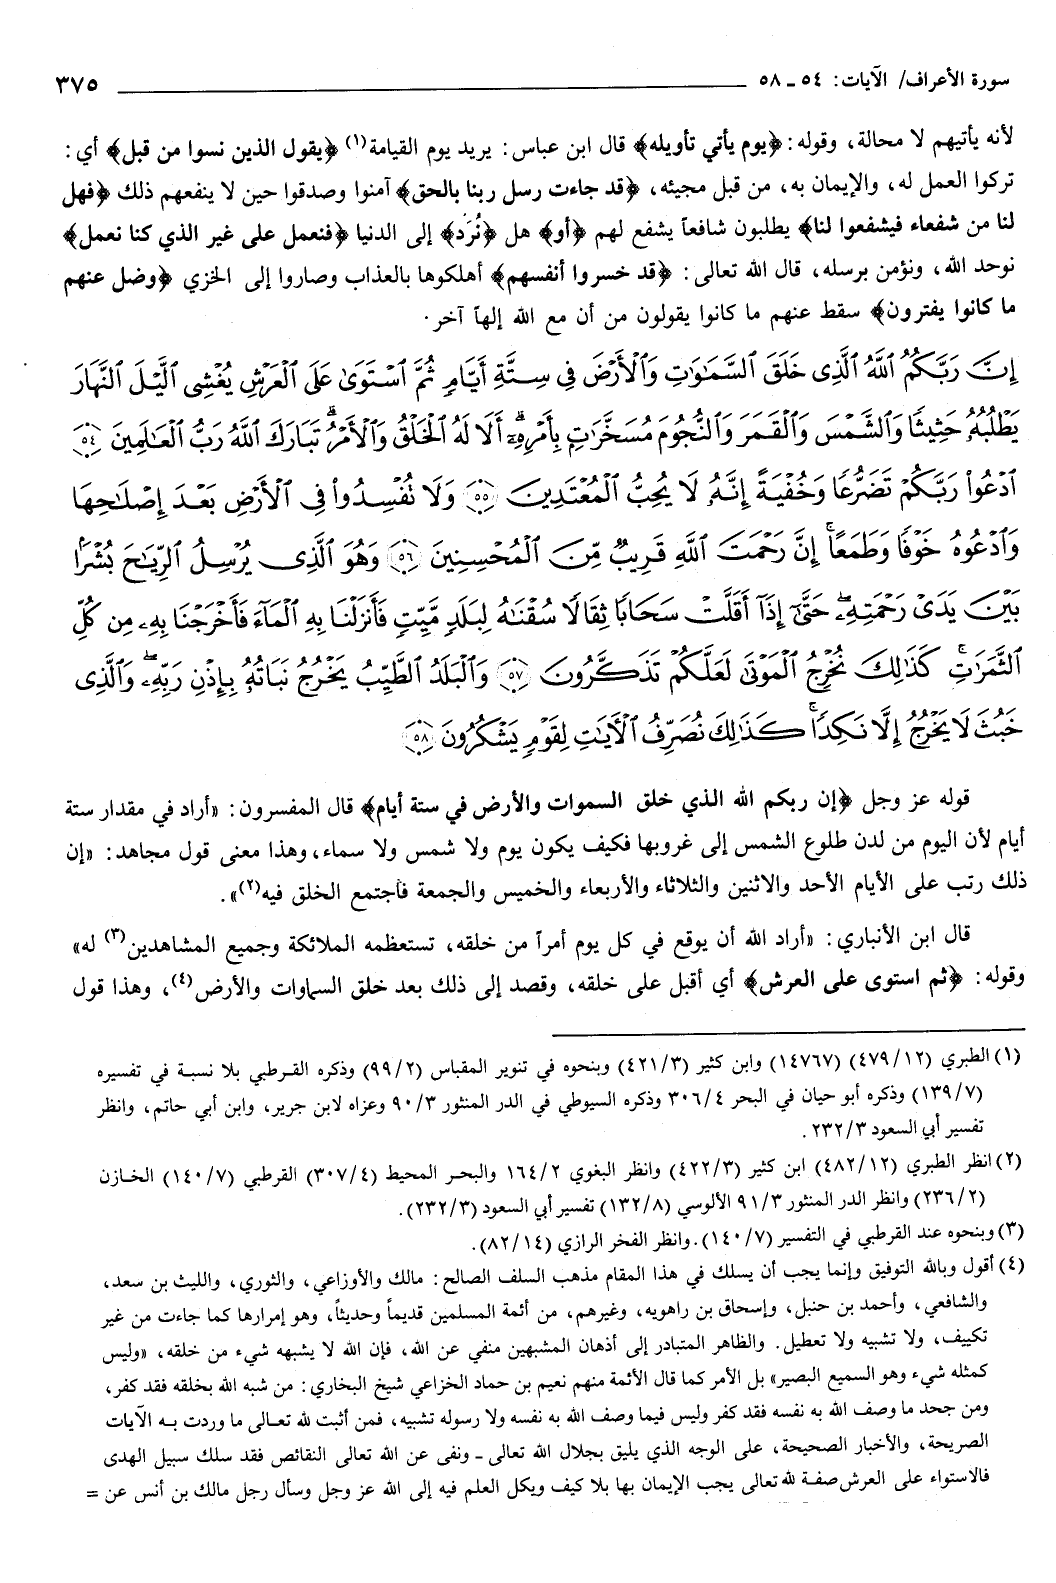 سورة الأعراف/ الآيات: ٥٤ ـ ٥٨ ٣٧٥
لأنه يأتيهم لا محالة، وقوله: ﴿يوم يأتي تأويله﴾ قال ابن عباس: يريد يوم القيامة(١) ﴿يقول الذين نسوا من قبل﴾ أي:
تركوا العمل له، والإيمان به، من قبل مجيئه، ﴿قد جاءت رسل ربنا بالحق﴾ آمنوا وصدقوا حين لا ينفعهم ذلك ﴿فهل
لنا من شفعاء فيشفعوا لنا﴾ يطلبون شافعاً يشفع لهم ﴿أو﴾ هل ﴿نُرَد﴾ إلى الدنيا ﴿فنعمل على غير الذي كنا نعمل﴾
نوحد الله، ونؤمن برسله، قال الله تعالى: ﴿قد خسروا أنفسهم﴾ أهلكوها بالعذاب وصاروا إلى الخزي ﴿وضل عنهم
ما كانوا يفترون﴾ سقط عنهم ما كانوا يقولون من أن مع الله إلهاً آخر.
إِنَّ رَبَّكُمُ ٱللَّهُ ٱلَّذِى خَلَقَ ٱلسَّمَٰوَٰتِ وَٱلْأَرْضَ فِى سِتَّةِ أَيَّامٍ ثُمَّ ٱسْتَوَىٰ عَلَى ٱلْعَرْشِ يُغْشِى ٱلَّيْلَ ٱلنَّهَارَ
يَطْلُبُهُۥ حَثِيثًا وَٱلشَّمْسَ وَٱلْقَمَرَ وَٱلنُّجُومَ مُسَخَّرَٰتٍۭ بِأَمْرِهِۦٓ ۗ أَلَا لَهُ ٱلْخَلْقُ وَٱلْأَمْرُ ۗ تَبَارَكَ ٱللَّهُ رَبُّ ٱلْعَٰلَمِينَ ٥٤
ٱدْعُوا۟ رَبَّكُمْ تَضَرُّعًا وَخُفْيَةً إِنَّهُۥ لَا يُحِبُّ ٱلْمُعْتَدِينَ ٥٥ وَلَا تُفْسِدُوا۟ فِى ٱلْأَرْضِ بَعْدَ إِصْلَٰحِهَا
وَٱدْعُوهُ خَوْفًا وَطَمَعًا ۚ إِنَّ رَحْمَتَ ٱللَّهِ قَرِيبٌ مِّنَ ٱلْمُحْسِنِينَ ٥٦ وَهُوَ ٱلَّذِى يُرْسِلُ ٱلرِّيَٰحَ بُشْرًۢا
بَيْنَ يَدَىْ رَحْمَتِهِۦ ۖ حَتَّىٰٓ إِذَآ أَقَلَّتْ سَحَابًا ثِقَالًا سُقْنَٰهُ لِبَلَدٍ مَّيِّتٍ فَأَنزَلْنَا بِهِ ٱلْمَآءَ فَأَخْرَجْنَا بِهِۦ مِن كُلِّ
ٱلثَّمَرَٰتِ ۚ كَذَٰلِكَ نُخْرِجُ ٱلْمَوْتَىٰ لَعَلَّكُمْ تَذَكَّرُونَ ٥٧ وَٱلْبَلَدُ ٱلطَّيِّبُ يَخْرُجُ نَبَاتُهُۥ بِإِذْنِ رَبِّهِۦ ۖ وَٱلَّذِى
خَبُثَ لَا يَخْرُجُ إِلَّا نَكِدًا ۚ كَذَٰلِكَ نُصَرِّفُ ٱلْأَيَٰتِ لِقَوْمٍ يَشْكُرُونَ ٥٨
قوله عز وجل ﴿إن ربكم الله الذي خلق السموات والأرض في ستة أيام﴾ قال المفسرون: «أراد في مقدار ستة
أيام لأن اليوم من لدن طلوع الشمس إلى غروبها فكيف يكون يوم ولا شمس ولا سماء، وهذا معنى قول مجاهد: «إن
ذلك رتب على الأيام الأحد والاثنين والثلاثاء والأربعاء والخميس والجمعة فأجتمع الخلق فيه(٢)».
قال ابن الأنباري: «أراد الله أن يوقع في كل يوم أمراً من خلقه، تستعظمه الملائكة وجميع المشاهدين(٣) له»
وقوله: ﴿ثم استوى على العرش﴾ أي أقبل على خلقه، وقصد إلى ذلك بعد خلق السماوات والأرض(٤)، وهذا قول
(١) الطبري (٤٧٩/١٢) (١٤٧٦٧) وابن كثير (٤٢١/٣) وبنحوه في تنوير المقباس (٩٩/٢) وذكره القرطبي بلا نسبة في تفسيره
(١٣٩/٧) وذكره أبو حيان في البحر ٣٠٦/٤ وذكره السيوطي في الدر المنثور ٩٠/٣ وعزاه لابن جرير، وابن أبي حاتم، وانظر
تفسير أبي السعود ٢٣٢/٣.
(٢) انظر الطبري (٤٨٢/١٢) ابن كثير (٤٢٢/٣) وانظر البغوي ١٦٤/٢ والبحر المحيط (٣٠٧/٤) القرطبي (١٤٠/٧) الخازن
(٢٣٦/٢) وانظر الدر المنثور ٩١/٣ الألوسي (١٣٢/٨) تفسير أبي السعود (٢٣٢/٣).
(٣) وبنحوه عند القرطبي في التفسير (١٤٠/٧). وانظر الفخر الرازي (٨٢/١٤).
(٤) أقول وبالله التوفيق وإنما يجب أن يسلك في هذا المقام مذهب السلف الصالح: مالك والأوزاعي، والثوري، والليث بن سعد،
والشافعي، وأحمد بن حنبل، وإسحاق بن راهويه، وغيرهم، من أئمة المسلمين قديماً وحديثاً، وهو إمرارها كما جاءت من غير
تكييف، ولا تشبيه ولا تعطيل. والظاهر المتبادر إلى أذهان المشبهين منفي عن الله، فإن الله لا يشبهه شيء من خلقه، «وليس
كمثله شيء وهو السميع البصير» بل الأمر كما قال الأئمة منهم نعيم بن حماد الخزاعي شيخ البخاري: من شبه الله بخلقه فقد كفر،
ومن جحد ما وصف الله به نفسه فقد كفر وليس فيما وصف الله به نفسه ولا رسوله تشبيه، فمن أثبت لله تعالى ما وردت به الآيات
الصريحة، والأخبار الصحيحة، على الوجه الذي يليق بجلال الله تعالى ـ ونفى عن الله تعالى النقائص فقد سلك سبيل الهدى
فالاستواء على العرش صفة لله تعالى يجب الإيمان بها بلا كيف ويكل العلم فيه إلى الله عز وجل وسأل رجل مالك بن أنس عن =